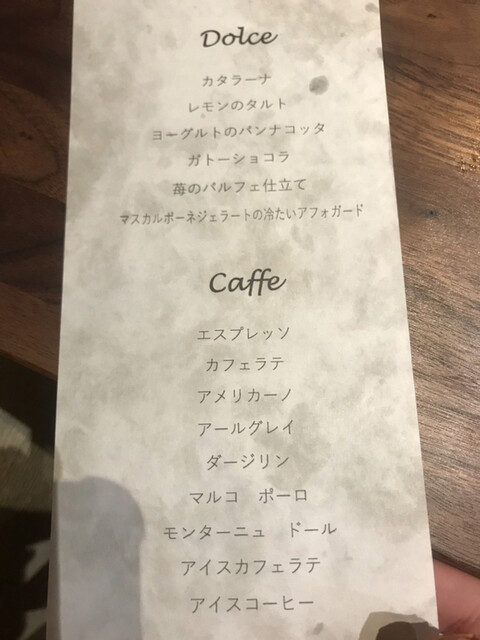 Dolce
カタラーナ
レモンのタルト
ヨーグルトのパンナコッタ
ガトーショコラ
苺のパルフェ仕立て
マスカルポーネジェラートの冷たいアフォガード
Caffe
エスプレッソ
カフェラテ
アメリカーノ
アールグレイ
ダージリン
マルコ　ポーロ
モンターニュ　ドール
アイスカフェラテ
アイスコーヒー